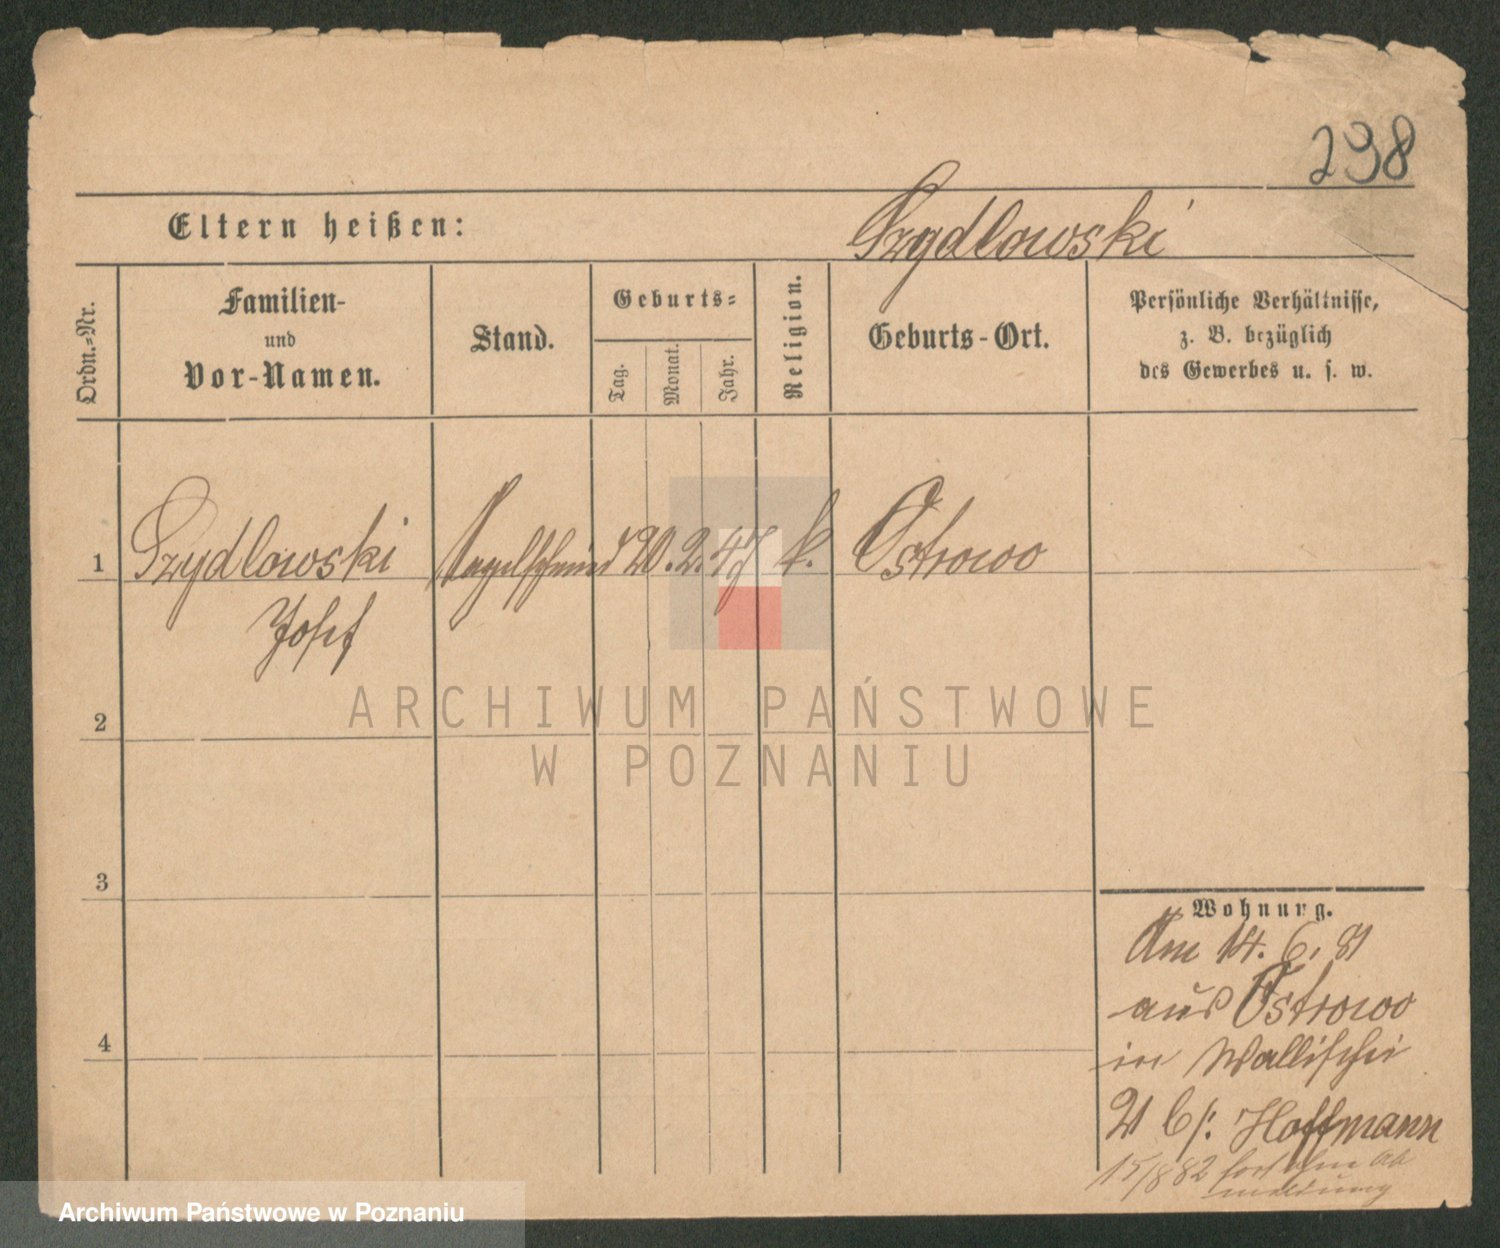 298
Eltern heißen:
Szydlowski
Ordn.-Nr.
Familien-
und
Vor-Namen.
Stand.
Geburts-
Tag.
Monat.
Jahr.
Religion.
Geburts-Ort.
Persönliche Verhältnisse,
z. B. bezüglich
des Gewerbes u. s. w.
1 Szydlowski Nagelschmied 20. 2. 47 k. Ostrowo
Josef
ARCHIWUM PAŃSTWOWE
W POZNANIU
2
3
4
Wohnung.
Am 14. 6. 81
aus Ostrowo
in Wallischei
21 b/. Hoffmann
15/8 82 fort ohne Ab
meldung
Archiwum Państwowe w Poznaniu